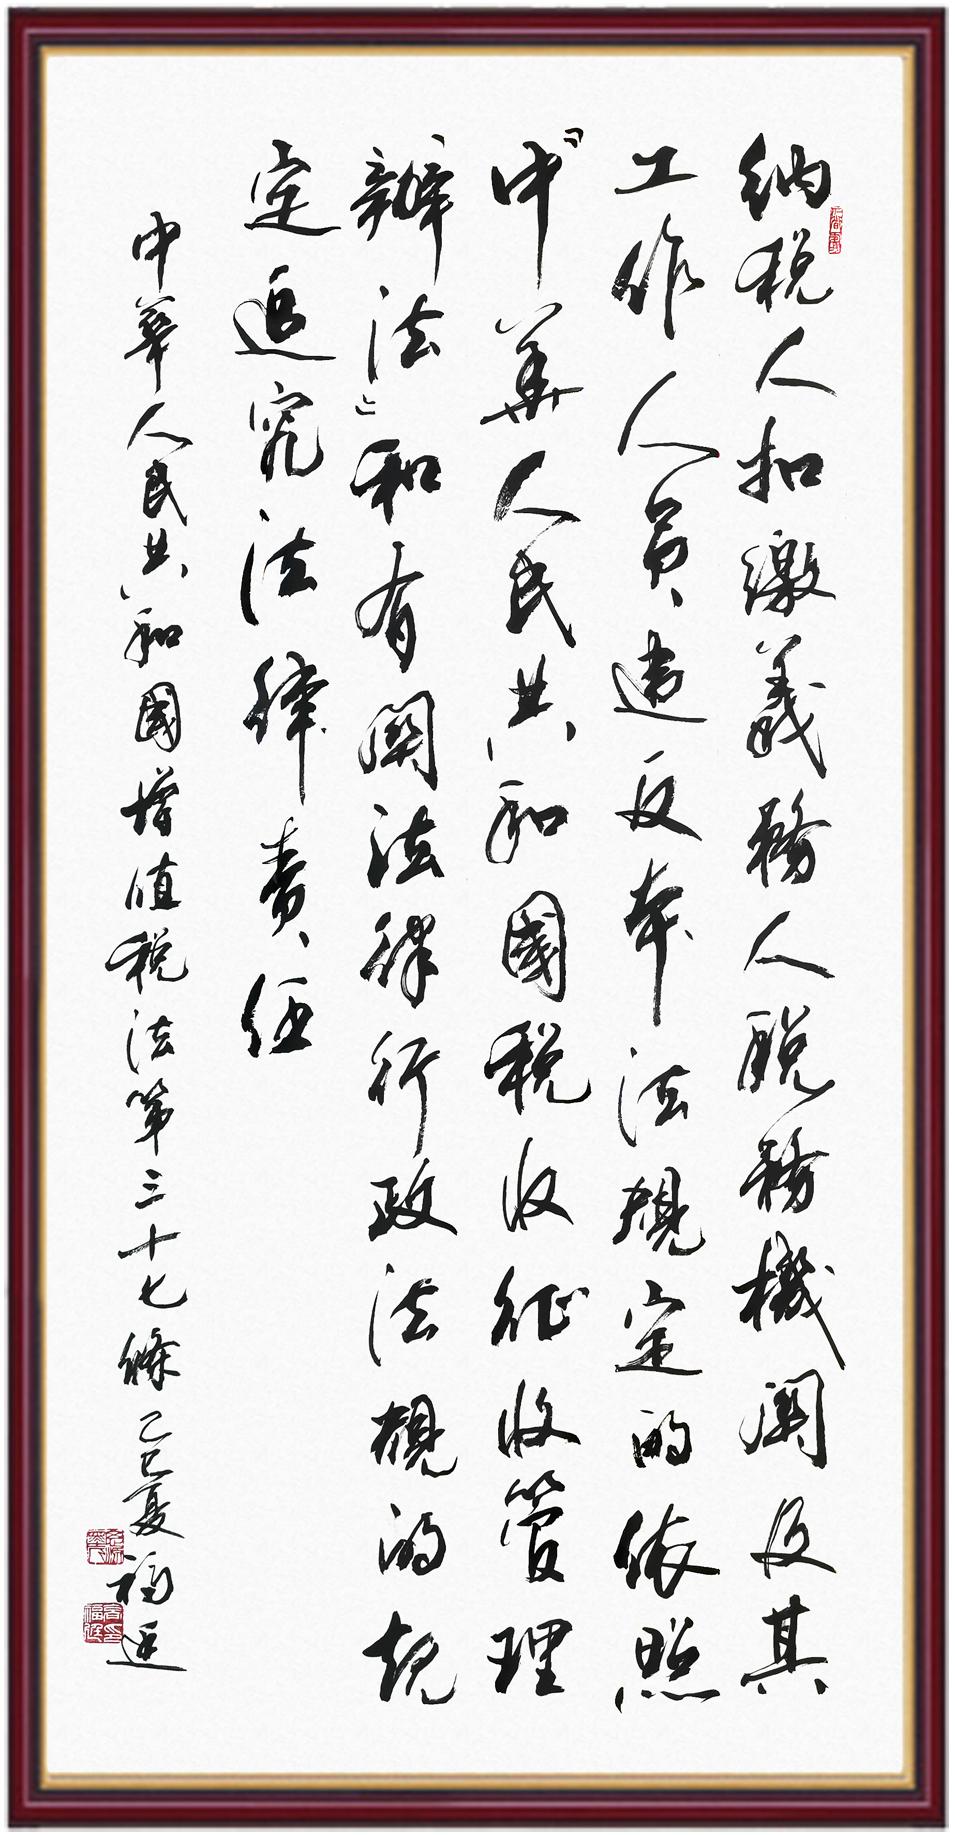 納税人扣繳義務人税務機關及其
工作人員違反本法規定的依照
「中華人民共和國税收征收管理
辦法」和有關法律行政法規的規
定追究法律責任
中華人民共和國增值税法第三十七條乙巳夏福廷